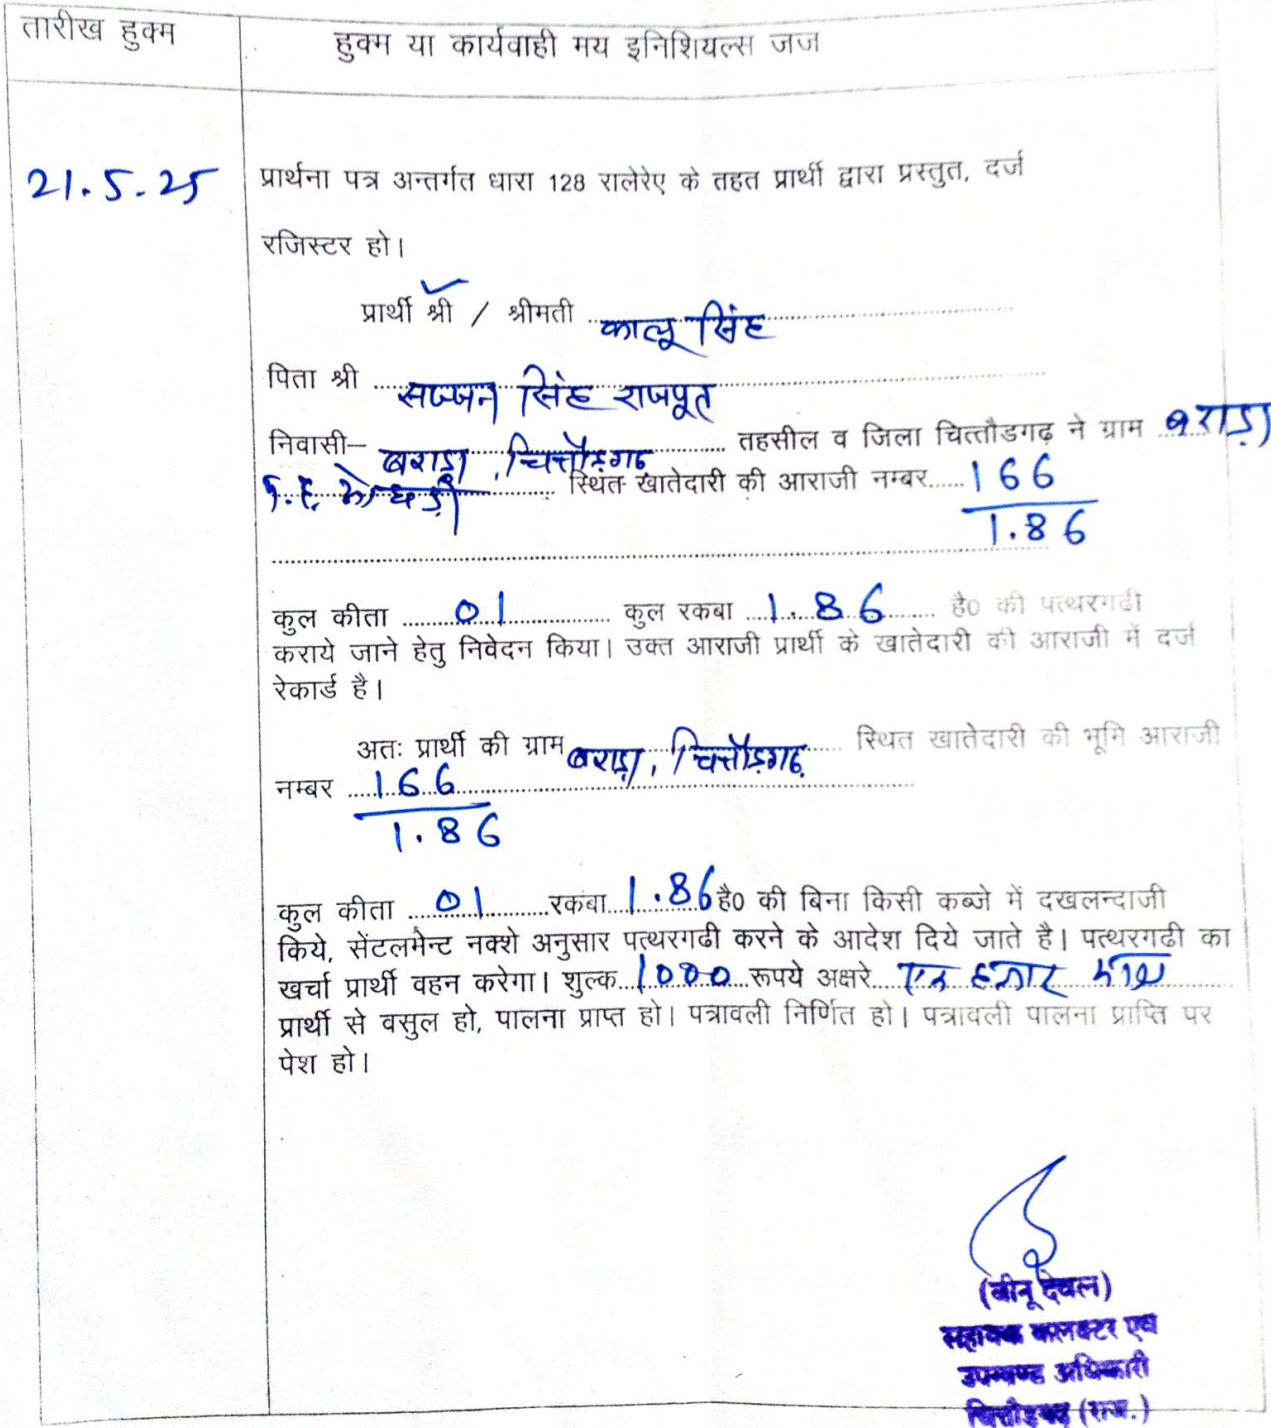 तारीख हुक्म
हुक्म या कार्यवाही मय इनिशियल्स जज
21.5.25
प्रार्थना पत्र अन्तर्गत धारा 128 रालेरेए के तहत प्रार्थी द्वारा प्रस्तुत, दर्ज
रजिस्टर हो।
प्रार्थी श्री / श्रीमती कालू सिंह
पिता श्री सज्जन सिंह राजपूत
निवासी– बराड़ा, चित्तौड़गढ़ तहसील व जिला चित्तौडगढ़ ने ग्राम बराड़ा
स्थित खातेदारी की आराजी नम्बर 166
1.86
कुल कीता 01 कुल रकबा 1.86 है0 की पत्थरगढी
कराये जाने हेतु निवेदन किया। उक्त आराजी प्रार्थी के खातेदारी की आराजी में दर्ज
रेकार्ड है।
अतः प्रार्थी की ग्राम बराड़ा, चित्तौड़गढ़ स्थित खातेदारी की भूमि आराजी
नम्बर 166
1.86
कुल कीता 01 रकबा 1.86 है0 की बिना किसी कब्जे में दखलन्दाजी
किये, सेंटलमेन्ट नक्शे अनुसार पत्थरगढी करने के आदेश दिये जाते है। पत्थरगढी का
खर्चा प्रार्थी वहन करेगा। शुल्क 1000 रूपये अक्षरे एक हजार मात्र
प्रार्थी से वसुल हो, पालना प्राप्त हो। पत्रावली निर्णित हो। पत्रावली पालना प्राप्ति पर
पेश हो।
(बीनू देवल)
सहायक कलक्टर एवं
उपखण्ड अधिकारी
चित्तौड़गढ़ (राज.)